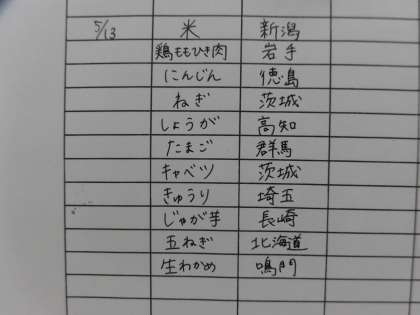 5/13 米 新潟
鶏ももひき肉 岩手
にんじん 徳島
ねぎ 茨城
しょうが 高知
たまご 群馬
キャベツ 茨城
きゅうり 埼玉
じゃが芋 長崎
玉ねぎ 北海道
生わかめ 鳴門